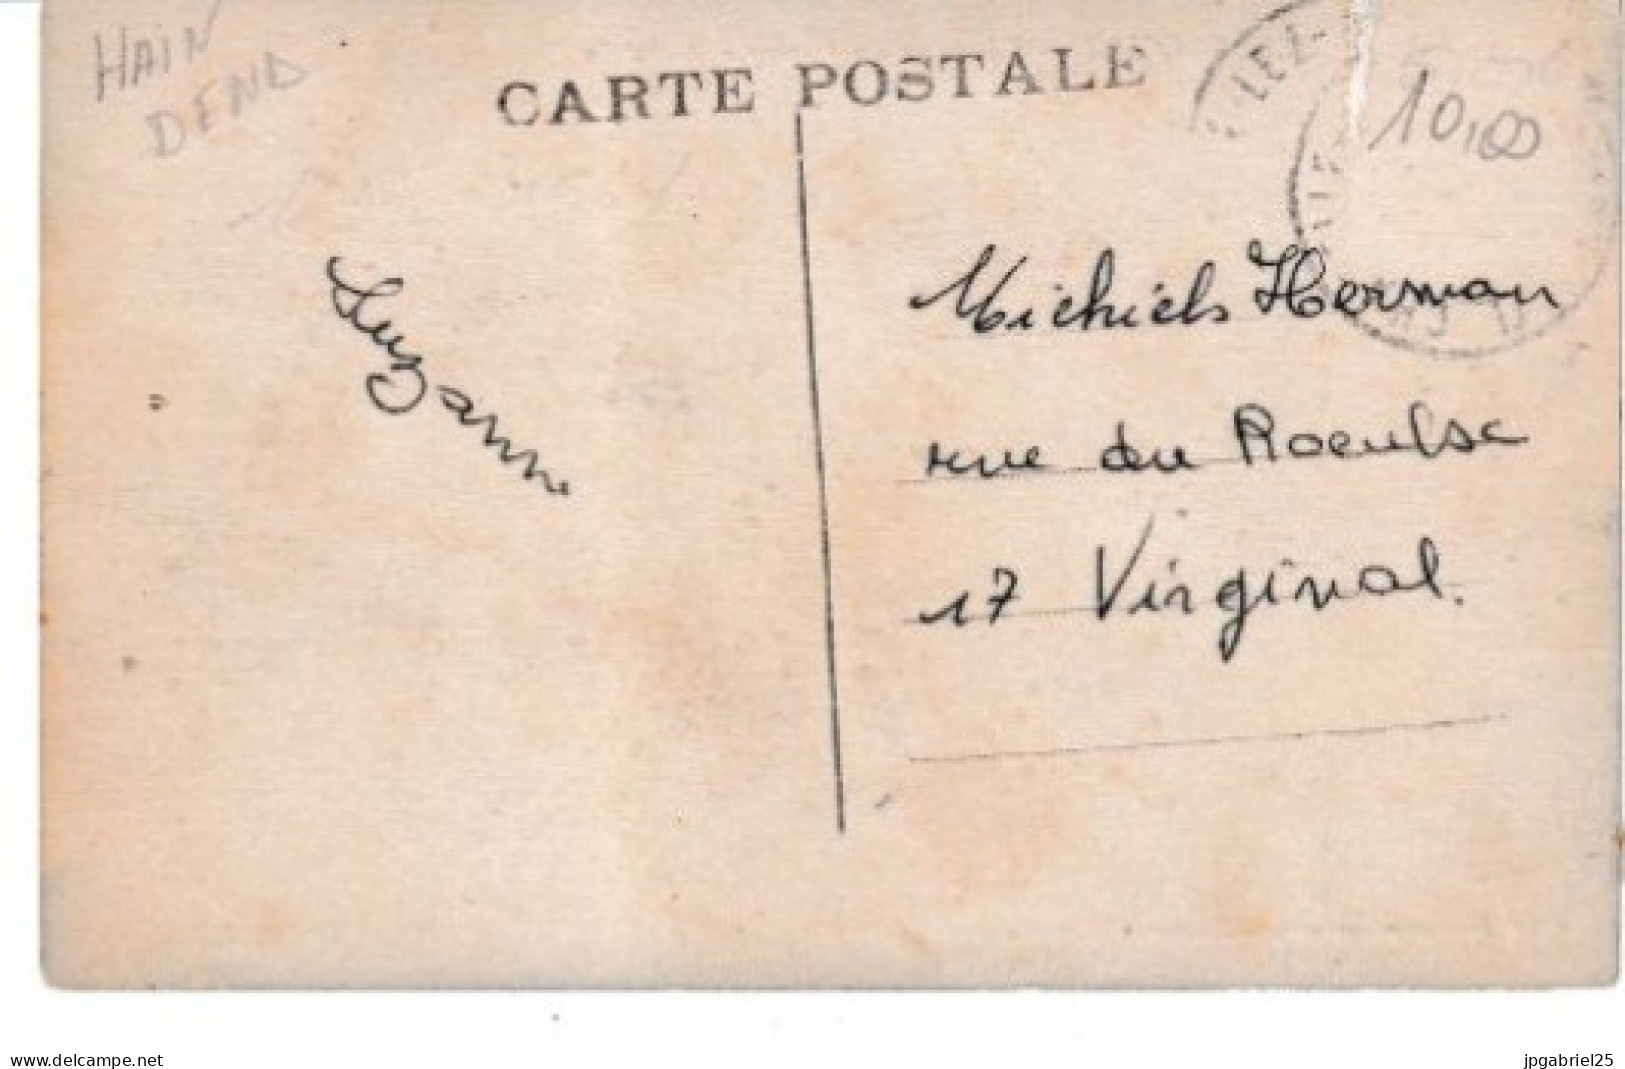 HAIN
DEND
CARTE POSTALE
10,00
Suzanne
Michiels Herman
rue du Roeulse
17 Virginal.
www.delcampe.net
jpgabriel25